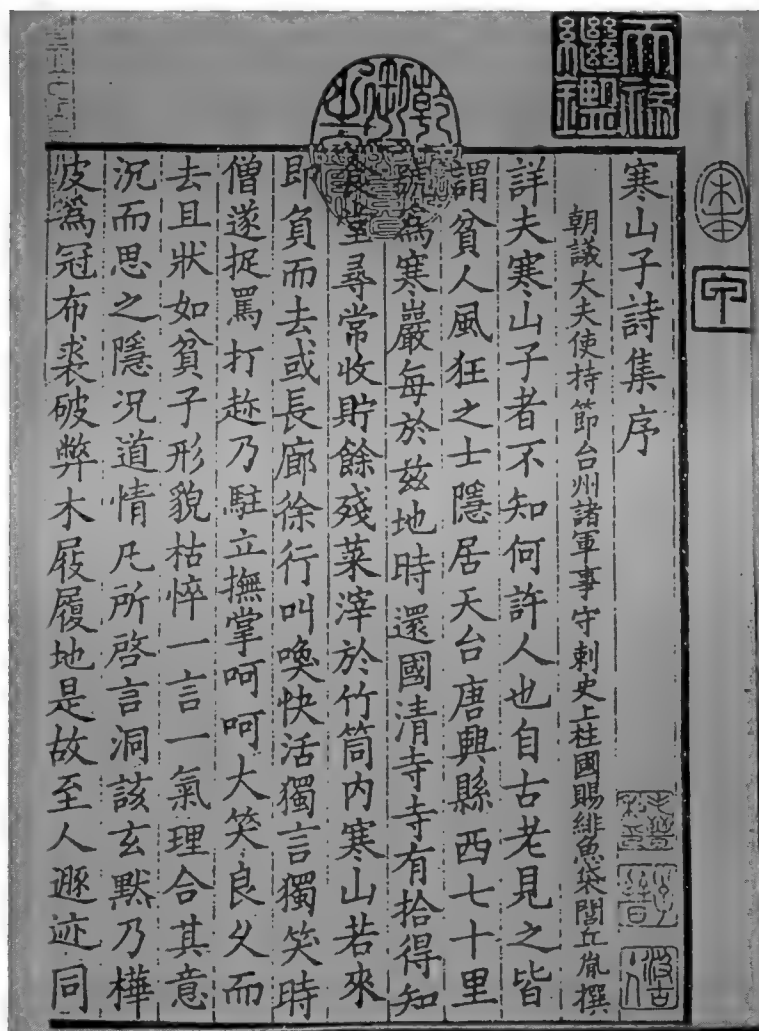 宋本
甲
天祿繼鑑
寒山子詩集序
朝議大夫使持節台州諸軍事守刺史上柱國賜緋魚袋閭丘胤撰
詳夫寒山子者不知何許人也自古老見之皆
謂貧人風狂之士隱居天台唐興縣西七十里
號爲寒巖每於茲地時還國清寺寺有拾得知
食堂尋常收貯餘殘菜滓於竹筒内寒山若來
即負而去或長廊徐行叫喚快活獨言獨笑時
僧遂捉罵打趂乃駐立撫掌呵呵大笑良久而
去且狀如貧子形貌枯悴一言一氣理合其意
況而思之隱況道情凡所啓言洞該玄默乃樺
皮爲冠布裘破弊木屐履地是故至人遯迹同